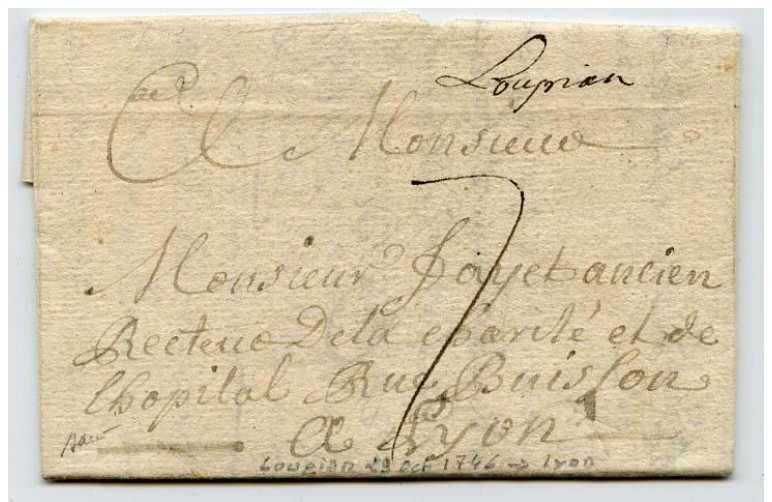 Loupian
A Monsieur
7
Monsieur Fayet ancien
Recteur De la charité et de
lhopital Rue Buisson
A Lyon
Loupian 29 oct 1746 → Lyon